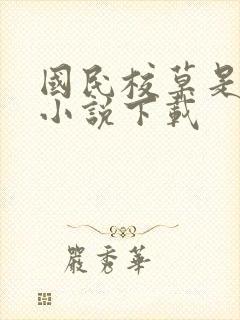 國民校草是
小說下載
嚴秀華